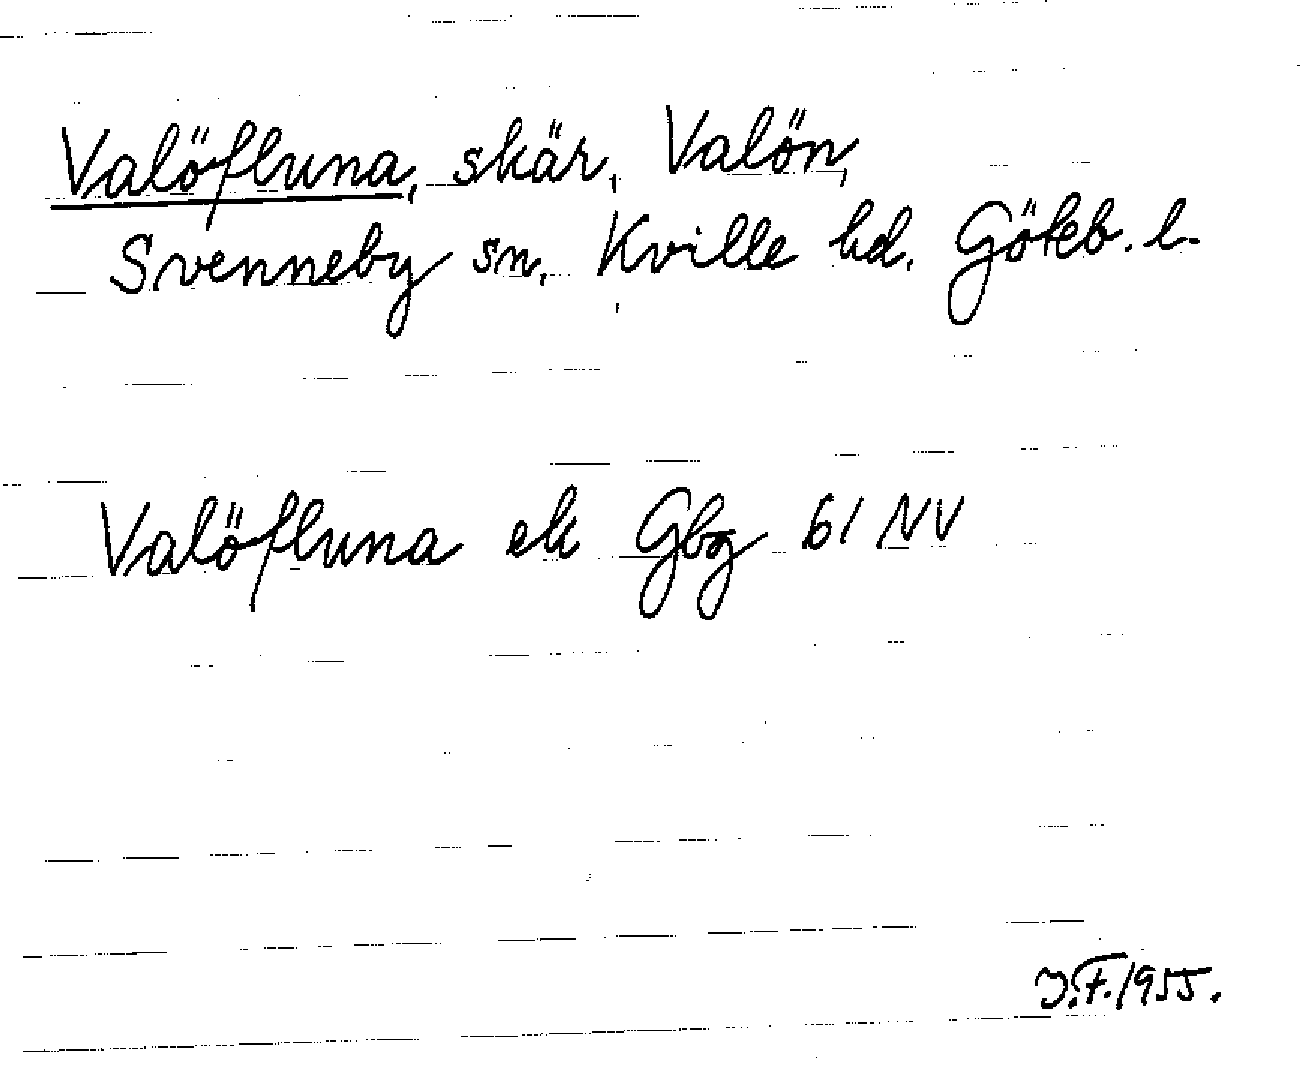 Valöfluna, skär, Valön,
Svenneby sn, Kville hd. Göteb. l.
Valöfluna ek Gbg 61 NV
J.F. 1955.